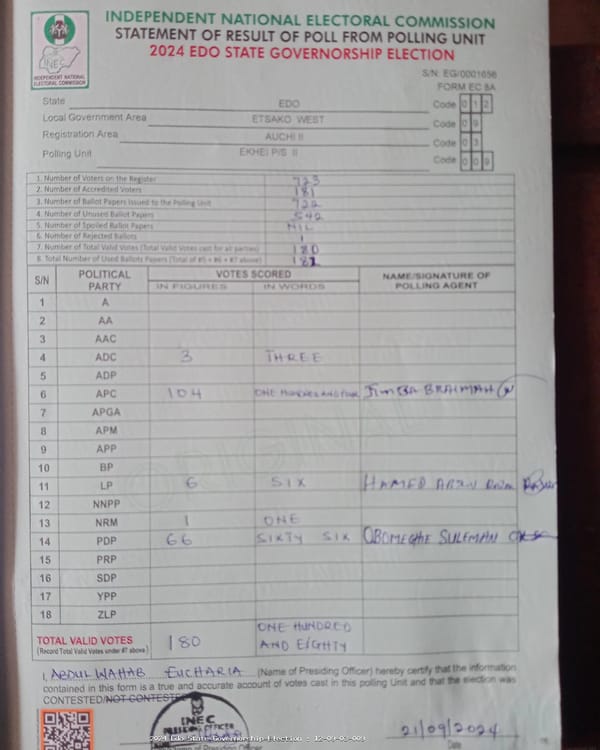 INDEPENDENT NATIONAL ELECTORAL COMMISSION
STATEMENT OF RESULT OF POLL FROM POLLING UNIT
2024 EDO STATE GOVERNORSHIP ELECTION
INEC
INDEPENDENT NATIONAL ELECTORAL COMMISSION
S/N: EG/0001656
FORM EC 8A
State EDO Code 0 1 2
Local Government Area ETSAKO WEST Code 0 9
Registration Area AUCHI II Code 0 3
Polling Unit EKHEI P/S II Code 0 0 9
1. Number of Voters on the Register 723
2. Number of Accredited Voters 181
3. Number of Ballot Papers Issued to the Polling Unit 722
4. Number of Unused Ballot Papers 542
5. Number of Spoiled Ballot Papers NIL
6. Number of Rejected Ballots 1
7. Number of Total Valid Votes (Total Valid Votes cast for all parties) 180
8. Total Number of Used Ballots Papers (Total of #5 + #6 + #7 above) 181
S/N POLITICAL PARTY VOTES SCORED NAME/SIGNATURE OF POLLING AGENT
IN FIGURES IN WORDS
1 A
2 AA
3 AAC
4 ADC 3 THREE
5 ADP
6 APC 104 ONE HUNDRED AND FOUR BRAIMAH
7 APGA
8 APM
9 APP
10 BP
11 LP 6 SIX HAMED
12 NNPP
13 NRM 1 ONE
14 PDP 66 SIXTY SIX OBOMEGHE SULEMAN
15 PRP
16 SDP
17 YPP
18 ZLP
TOTAL VALID VOTES 180 ONE HUNDRED AND EIGHTY
(Record Total Valid Votes under #7 above)
I, ABDULWAHAB EUCHARIA (Name of Presiding Officer) hereby certify that the information
contained in this form is a true and accurate account of votes cast in this polling Unit and that the election was
CONTESTED/NOT CONTESTED
INEC
PRESIDING OFFICER
21/09/2024
2024 Edo State Governorship Election : 12-09-03-009
Date